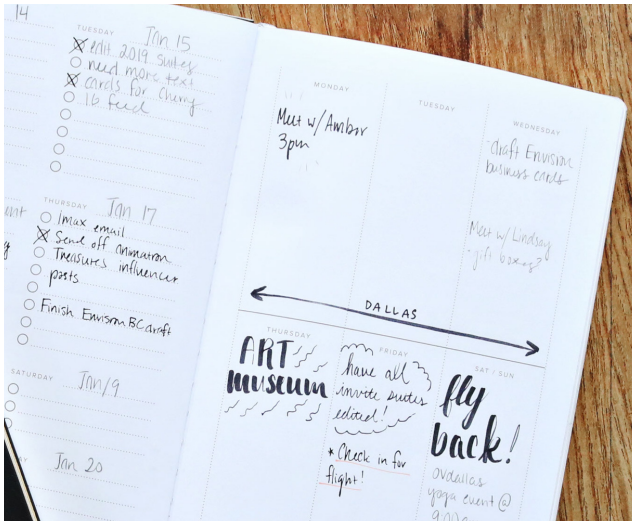 14
TUESDAY Jan 15
edit 2019 suites
need more text
cards for cherry
1b feed
THURSDAY Jan 17
Imax email
Send off animation
Treasures influencer
posts
Finish Envison BC draft
SATURDAY Jan 19
Jan 20
MONDAY
Meet w/ Amber
3pm
TUESDAY
WEDNESDAY
draft Envision
business cards
Meet w/ Lindsay
gift boxes?
DALLAS
THURSDAY
ART
museum
FRIDAY
have all
invite suites
edited!
* Check in for
flight!
SAT / SUN
fly
back!
ovdallas
yoga event @